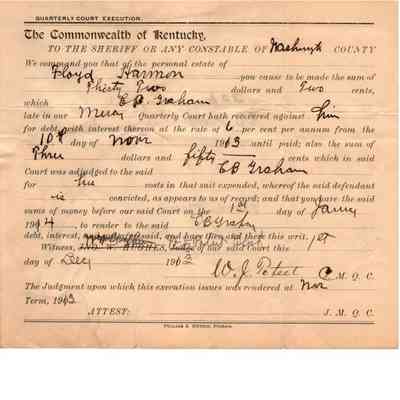 QUARTERLY COURT EXECUTION.
The Commonwealth of Kentucky,
TO THE SHERIFF OR ANY CONSTABLE OF COUNTY
We command you that of the personal estate of
Floyd Harmon you cause to be made the sum of
Thirty Two dollars and Two cents,
which C B Graham
late in our Mercer Quarterly Court hath recovered against him
for debt with interest thereon at the rate of 6 per cent per annum from the
10th day of Nov 1913 until paid; also the sum of
Three dollars and fifty cents which in said
Court was adjudged to the said C B Graham
for his costs in that suit expended, whereof the said defendant
is convicted, as appears to us of record; and that you have the said
sums of money before our said Court on the 1st day of
1914, to render to the said C B Graham
debt, interest, and costs aforesaid, and have then and there this writ.
Witness, HUGHES, Judge of our said Court this 1st
day of Dec 1913 W. J. Poteet C. M. Q. C.
The Judgment upon which this execution issues was rendered at Nov
Term, 1913
ATTEST: J. M. Q. C.